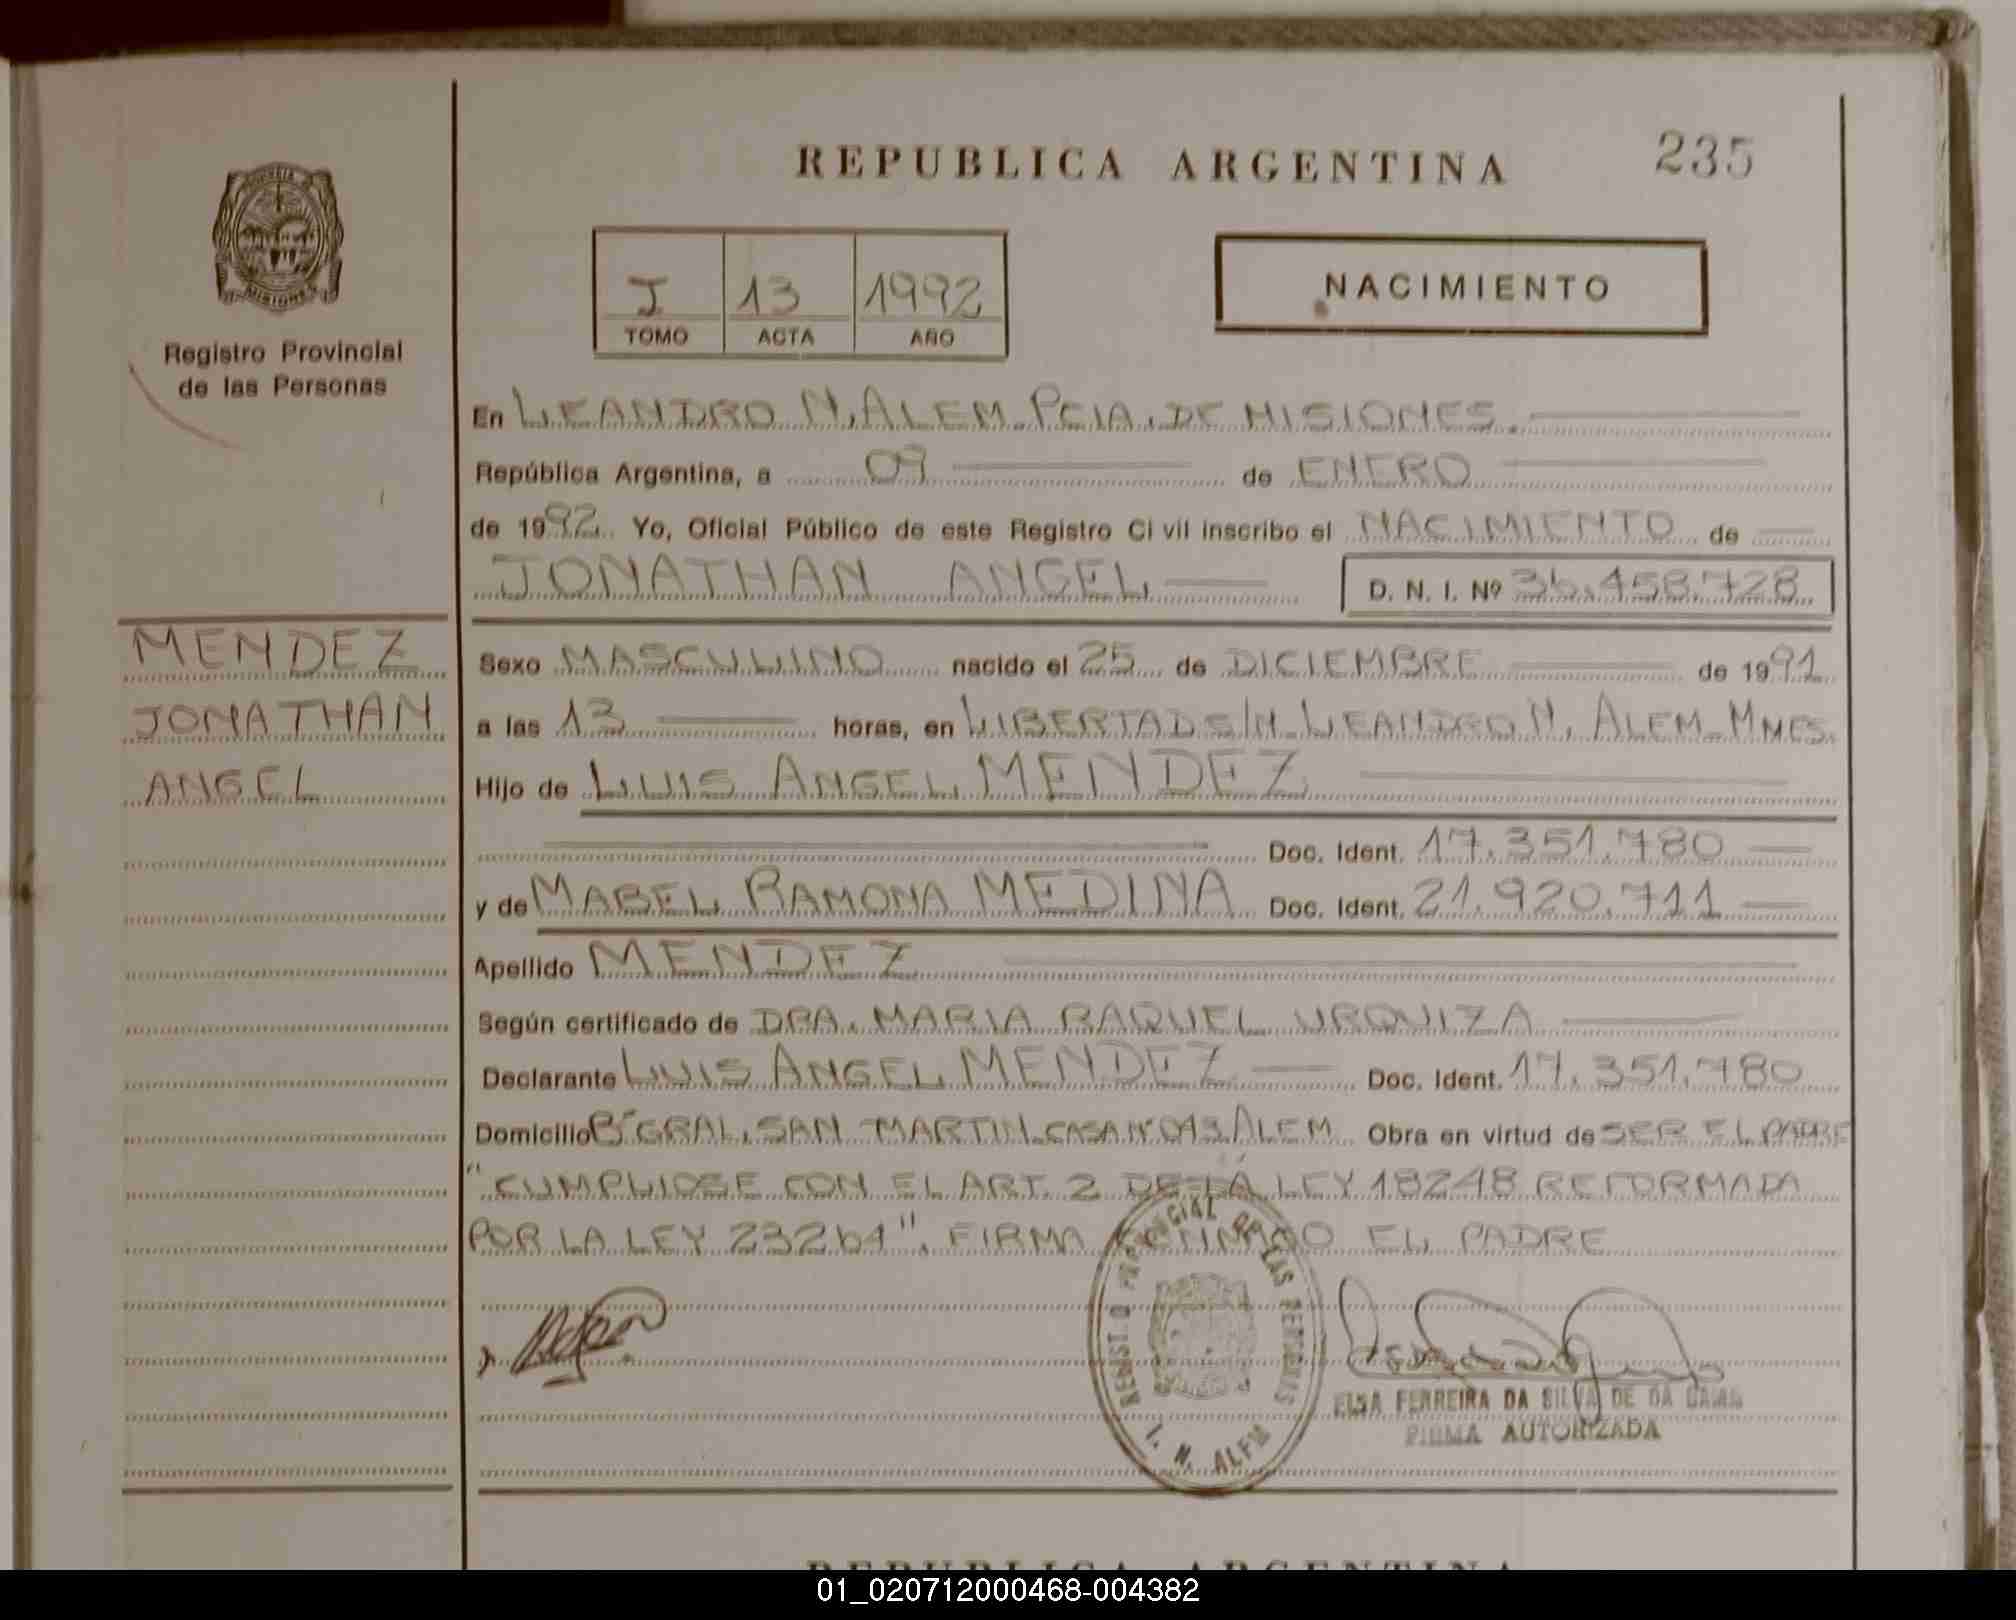 REPUBLICA ARGENTINA
235
MISIONES
Registro Provincial
de las Personas
I 13 1992
TOMO ACTA AÑO
NACIMIENTO
En LEANDRO N. ALEM - PCIA. DE MISIONES.
República Argentina, a 09 de ENERO
de 1992 Yo, Oficial Público de este Registro Civil inscribo el NACIMIENTO de
JONATHAN ANGEL D. N. I. Nº 36.458.728
MENDEZ
JONATHAN
ANGEL
Sexo MASCULINO nacido el 25 de DICIEMBRE de 1991
a las 13 horas, en LIBERTAD S/N. LEANDRO N. ALEM - MNES.
Hijo de LUIS ANGEL MENDEZ
Doc. Ident. 17.351.780
y de MABEL RAMONA MEDINA Doc. Ident. 21.920.711
Apellido MENDEZ
Según certificado de DRA. MARIA RAQUEL URQUIZA
Declarante LUIS ANGEL MENDEZ Doc. Ident. 17.351.780
Domicilio Bº GRAL. SAN MARTIN - CASA Nº ALEM Obra en virtud de SER EL PADRE
"CUMPLIOSE CON EL ART. 2 DE LA LEY 18248 REFORMADA
POR LA LEY 23264". FIRMA EL PADRE
REGISTRO PROVINCIAL DE LAS PERSONAS
L. N. ALEM
ELSA FERREIRA DA SILVA DE DA GAMA
FIRMA AUTORIZADA
REPUBLICA ARGENTINA
01_020712000468-004382